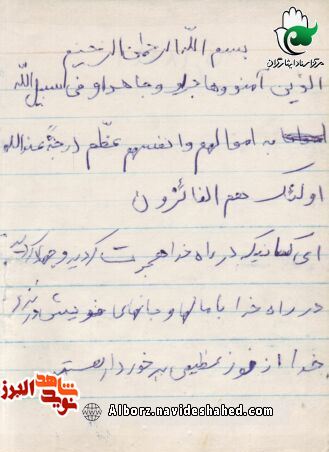 مرکز اسناد ایثارگران
بسم اللّه الرحمان الرحیم
الذین آمنو وهاجرو وجاهداو فی سبیل اللّه
به اموالهم وانفسهم عظّم درجةً عندالله
اولئک هم الفائزون
ای کسانیکه در راه خدا هجرت کردید و جهاد کردید
در راه خدا با مالها و جانهای خویش در نزد
خدا از فوز عظیمی برخوردار هستید
نوید شاهد البرز
Alborz.navideshahed.com